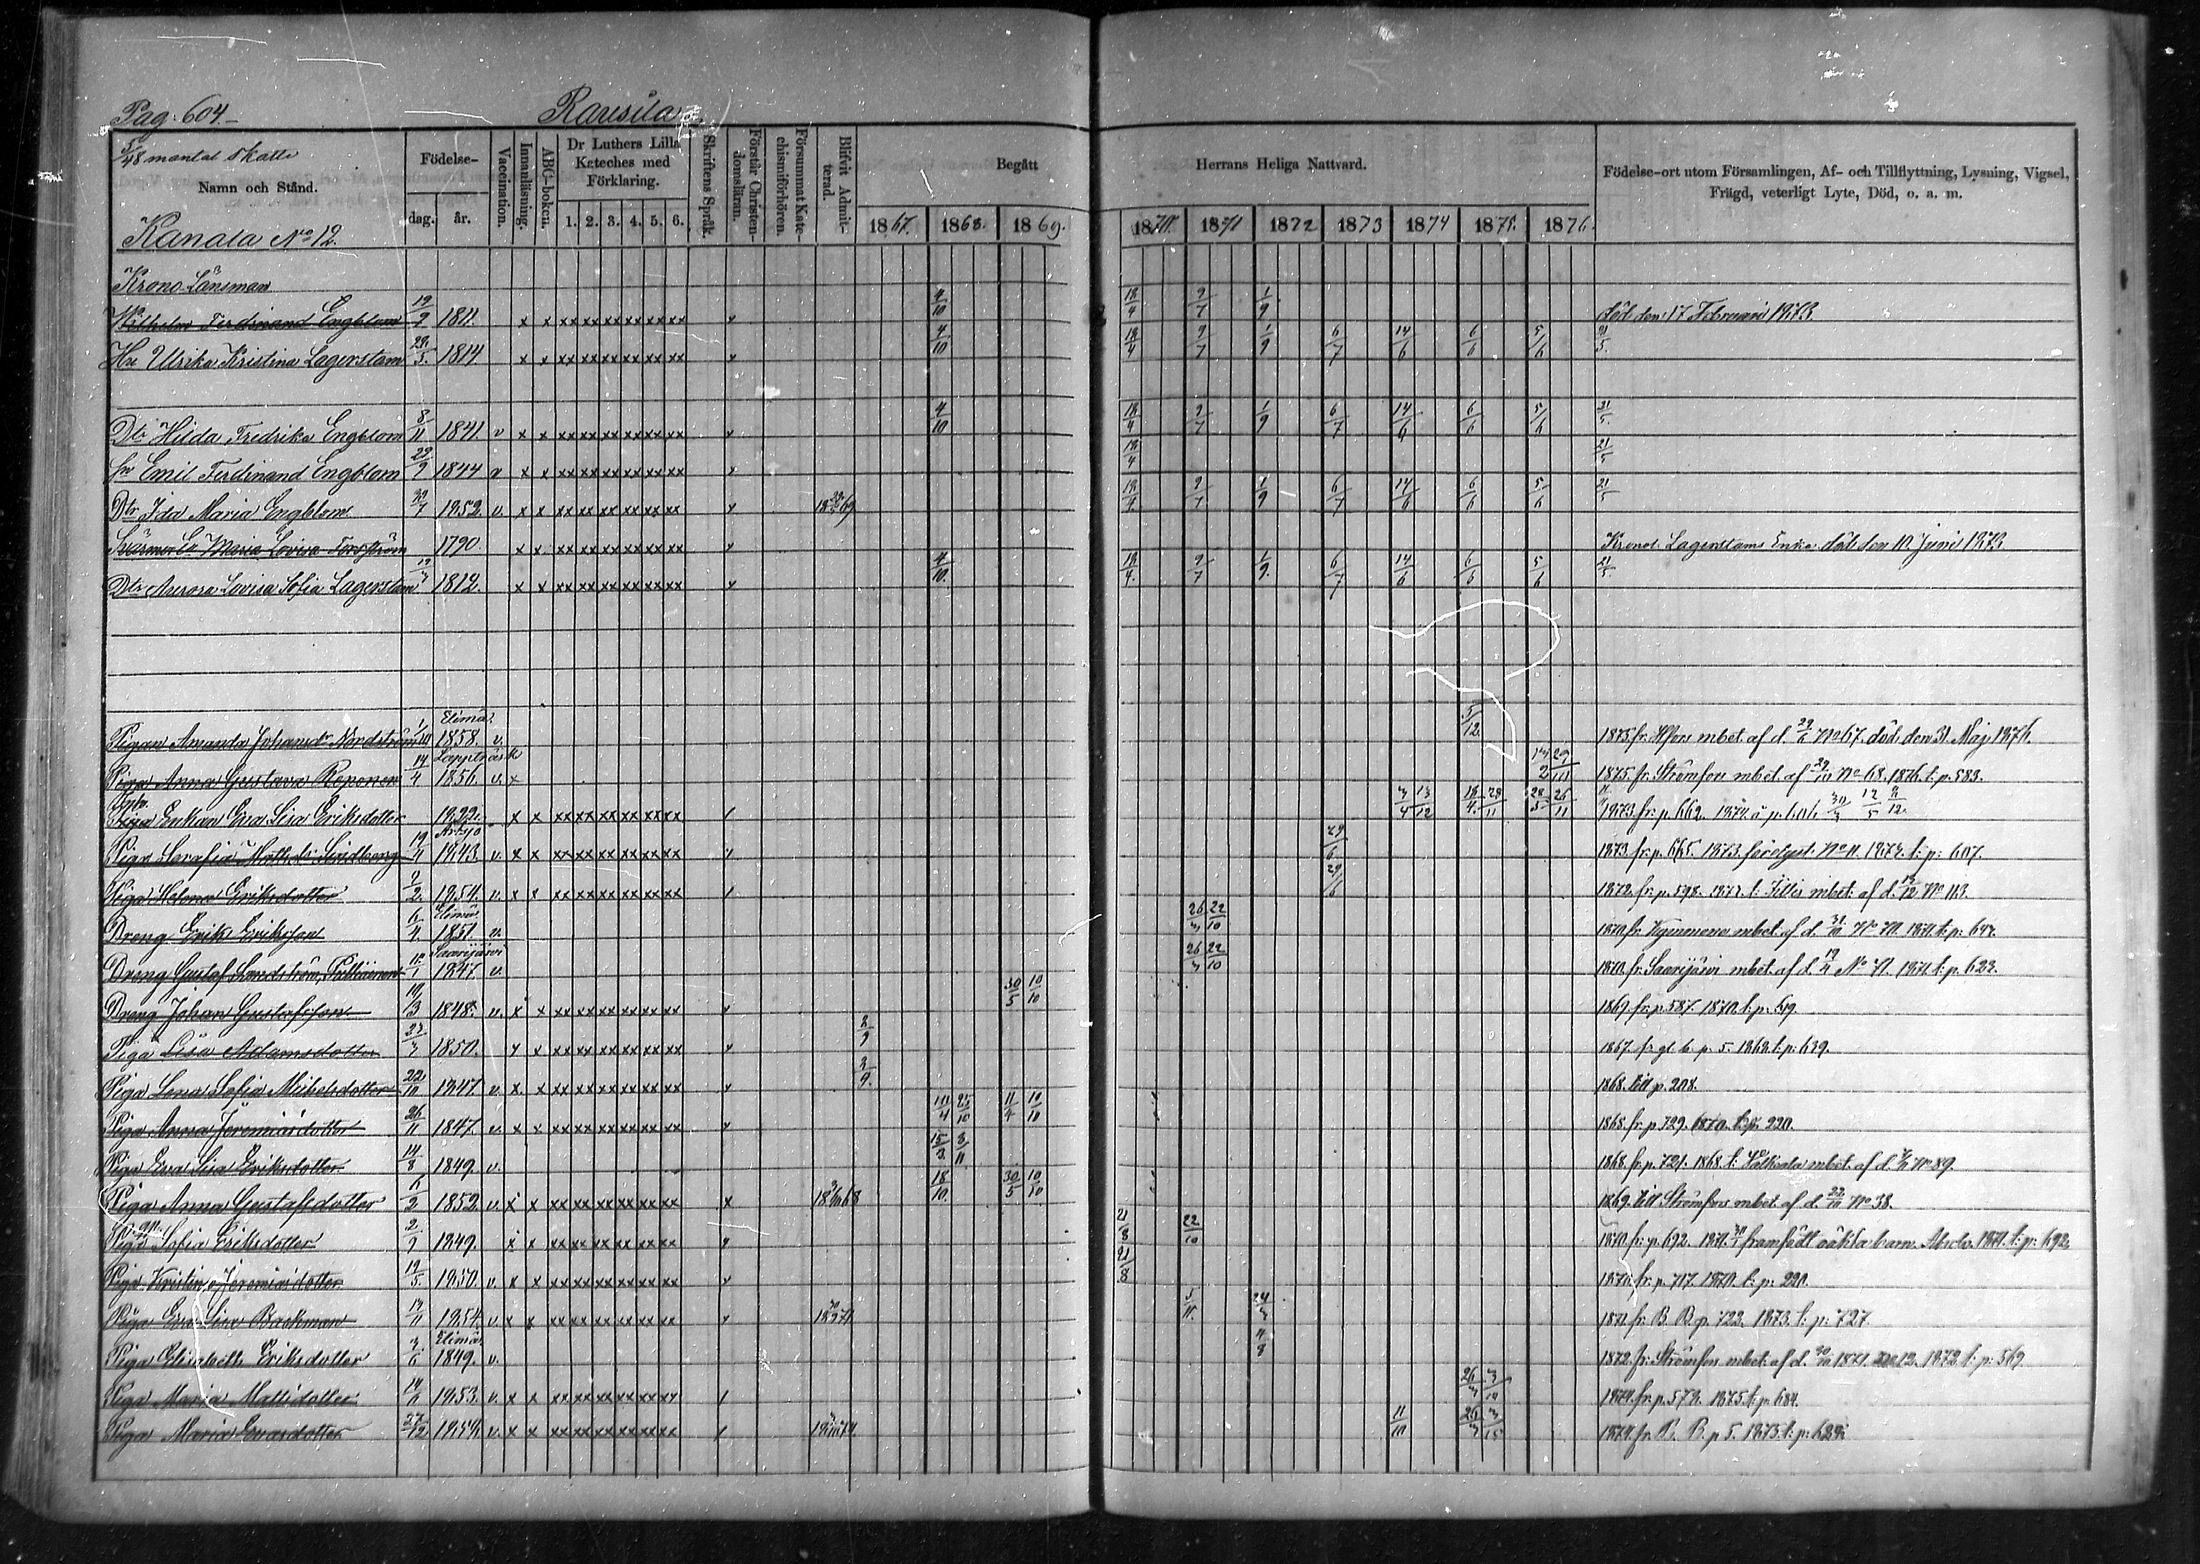 Pag: 604.
Rausila
5/48 mantal skatte
Namn och Stånd.
Kanala No 12.
Födelse-
dag. år.
Vaccination.
Innanläsning.
ABC-boken.
Dr Luthers Lilla
Kateches med
Förklaring.
1. 2. 3. 4. 5. 6.
Skriftens Språk.
Förstår Christen-
domsläran.
Försummat Kate-
chismiförhören.
Blifvit Admit-
terad.
Begått
1867. 1868. 1869.
Herrans Heliga Nattvard.
1870. 1871 1872 1873 1874 1875. 1876.
Födelse-ort utom Församlingen, Af- och Tillflyttning, Lysning, Vigsel,
Frägd, veterligt Lyte, Död, o. a. m.
Krono-Länsman
Wilhelm Ferdinand Engblom 19/9 1811. x x xx xx xx xx xx xx 4/10 18/4 9/7 1/9 död den 17 Februari 1873.
Hu Ulrika Kristina Lagerstam 29/5. 1814 x x xx xx xx xx xx xx 4/10 18/4 9/7 1/9 6/7 14/6 6/6 5/6 21/5.
Dtr Hilda Fredrika Engblom 8/11 1841. v x x xx xx xx xx xx xx 4/10 18/4 9/7 1/9 6/7 14/6 6/6 5/6 21/5.
Sn Emil Ferdinand Engblom 29/9 1844 v x x xx xx xx xx xx xx 18/4 21/5
Dtr Ida Maria Engblom 1852. v. x x xx xx xx xx xx xx 18 69 18/4 9/7 1/9 6/7 14/6 6/6 5/6 21/5
Svärmor Maria Lovisa Forsström 1790. x x xx xx xx xx xx xx Kronol. Lagerstams Enka död den 10 Juni 1873
Dtr Aurora Lovisa Sofia Lagerstam 1812. x x xx xx xx xx xx xx 4/10. 18/4. 9/7 1/9. 6/7 14/6 6/6 5/6 21/5.
Elimä.
Pigan Amanda Johansdr Nordström 1/10 1858. v. 5/12. 1875. fr. Hfors mbet. af d. 29/6 No 67. död den 31 Maj 1876.
Lappträsk
Piga Anna Gustava Reponen 14/4 1856. v. x 1875. fr. Strömfors mbet. af 29/10 No 68. 1876. t. p. 583.
Enkan Eva Lisa Eriksdotter 1822. x x xx xx xx xx xx xx 1873. fr. p. 662. 1874. å p. 606
Artsjö
Piga Serafia Mattsdr Lindberg 19/4 1843. v. x x xx xx xx xx xx xx 29/6 1873. fr. p. 665. 1873. förelyst. No 11. 1874. t. p. 607.
Piga Helena Eriksdotter 9/2. 1854. v. x x xx xx xx xx xx xx 29/6 1872. fr. p. 598. 1873. t. Jittis mbet. af d. No 113.
Elimä
Dreng Erik Eriksson 6/4. 1851. v. 26/3 22/10 1870. fr. Kymmene mbet. af d. 31/10 No 70. 1871. t. p. 647.
Saarijärvi
Dreng Gustaf Sandström, 1847. v. 26/3 22/10 1870. fr. Saarijärvi mbet. af d. No 71. 1871. t. p. 622.
Dreng Johan Gustafsson 19/3 1848. v. x x xx xx xx xx xx xx 30/5 10/10 1869. fr. p. 587. 1870. t. p. 619.
Piga Lisa Adamsdotter 27/3 1850. x x xx xx xx xx xx xx 2/9 1867. fr. gl. b. p. 5. 1868. t. p. 639.
Piga Lena Sofia Mikelsdotter 22/10 1847 v. x. x. xx xx xx xx xx xx 2/9. 1868. till p. 208.
Piga Anna Jeremiasdotter 26/11 1847 v. x x xx xx xx xx xx xx 25/10 11/4 10/10 1868. fr. p. 729. 1870. t. p. 220.
Piga Eva Lisa Eriksdotter 14/8 1849. v. 15/3. 8/11 1868. fr. p. 721. 1868. t. Valkeala mbet. af d. No 89.
Piga Anna Gustafsdotter 6/2 1852. v. x x xx xx xx xx xx xx x 18 68 18/10. 30/5 10/10 1869. till Strömfors mbet. af d. 22/10 No 38.
Piga Sofia Eriksdotter 2/9 1849. x x xx xx xx xx xx xx 21/8 22/10 1870. fr. p. 692. 1871. framfödt oäkta barn. Absolv. 1871. t. p. 692.
Piga Kristina Jeremiasdotter 19/5. 1850. v. x x xx xx xx xx xx xx 21/8 1870. fr. p. 717. 1870. t. p. 220.
Piga Eva Lisa Backman 1854. v. x x xx xx xx xx xx xx 18 71 5/11. 24/3 1871. fr. B. B. p. 722. 1873. t. p. 727.
Elimä
Piga Elisabeth Eriksdotter 3/6 1849. v. 4/8 1872. fr. Strömfors mbet. af d. 1871 No 12. 1872. t. p. 569.
Piga Maria Mattsdotter 1853. v. x x xx xx xx xx xx xx 26/3 1874. fr. p. 573. 1875. t. p. 684.
Piga Maria Evasdotter 27/12 1859. v. x x xx xx xx xx xx xx 18 74. 11/10 26/3 1874. fr. B. B. p. 5. 1875. t. p. 628.